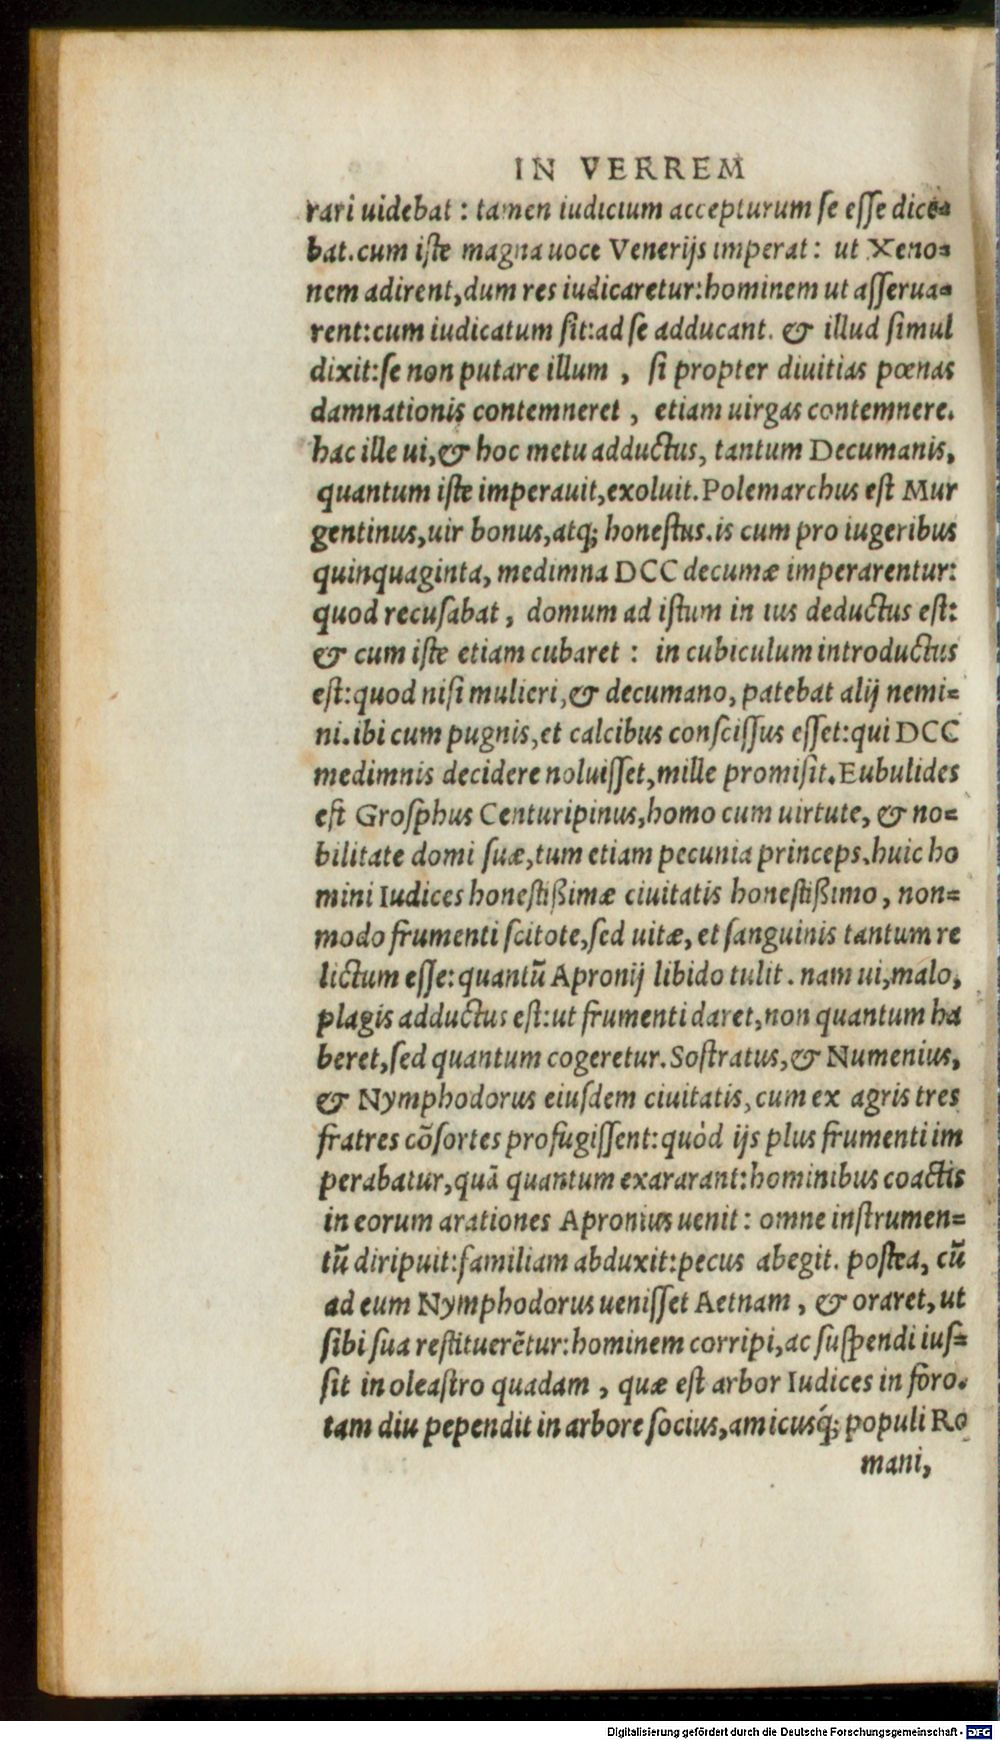 IN VERREM
rari uidebat : tamen iudicium accepturum se esse dice=
bat. cum iste magna uoce Venerijs imperat : ut Xeno=
nem adirent, dum res iudicaretur: hominem ut asserua=
rent: cum iudicatum sit: ad se adducant. & illud simul
dixit: se non putare illum , si propter diuitias pœnas
damnationis contemneret , etiam uirgas contemnere.
hac ille ui, & hoc metu adductus, tantum Decumanis,
quantum iste imperauit, exoluit. Polemarchus est Mur
gentinus, uir bonus, atq; honestus. is cum pro iugeribus
quinquaginta, medimna DCC decumæ imperarentur:
quod recusabat , domum ad istum in ius deductus est:
& cum iste etiam cubaret : in cubiculum introductus
est: quod nisi mulieri, & decumano, patebat alij nemi=
ni. ibi cum pugnis, et calcibus conscissus esset: qui DCC
medimnis decidere noluisset, mille promisit. Eubulides
est Grosphus Centuripinus, homo cum uirtute, & no=
bilitate domi suæ, tum etiam pecunia princeps. huic ho
mini Iudices honestißimæ ciuitatis honestißimo , non=
modo frumenti scitote, sed uitæ, et sanguinis tantum re
lictum esse: quantũ Apronij libido tulit . nam ui, malo,
plagis adductus est: ut frumenti daret, non quantum ha
beret, sed quantum cogeretur. Sostratus, & Numenius,
& Nymphodorus eiusdem ciuitatis, cum ex agris tres
fratres cõsortes profugissent: quòd ijs plus frumenti im
perabatur, quã quantum exararant: hominibus coactis
in eorum arationes Apronius uenit : omne instrumen=
tũ diripuit: familiam abduxit: pecus abegit. postea, cũ
ad eum Nymphodorus uenisset Aetnam , & oraret, ut
sibi sua restituerẽtur: hominem corripi, ac suspendi ius=
sit in oleastro quadam , quæ est arbor Iudices in foro.
tam diu pependit in arbore socius, amicusq́; populi Ro
mani,
Digitalisierung gefördert durch die Deutsche Forschungsgemeinschaft - DFG